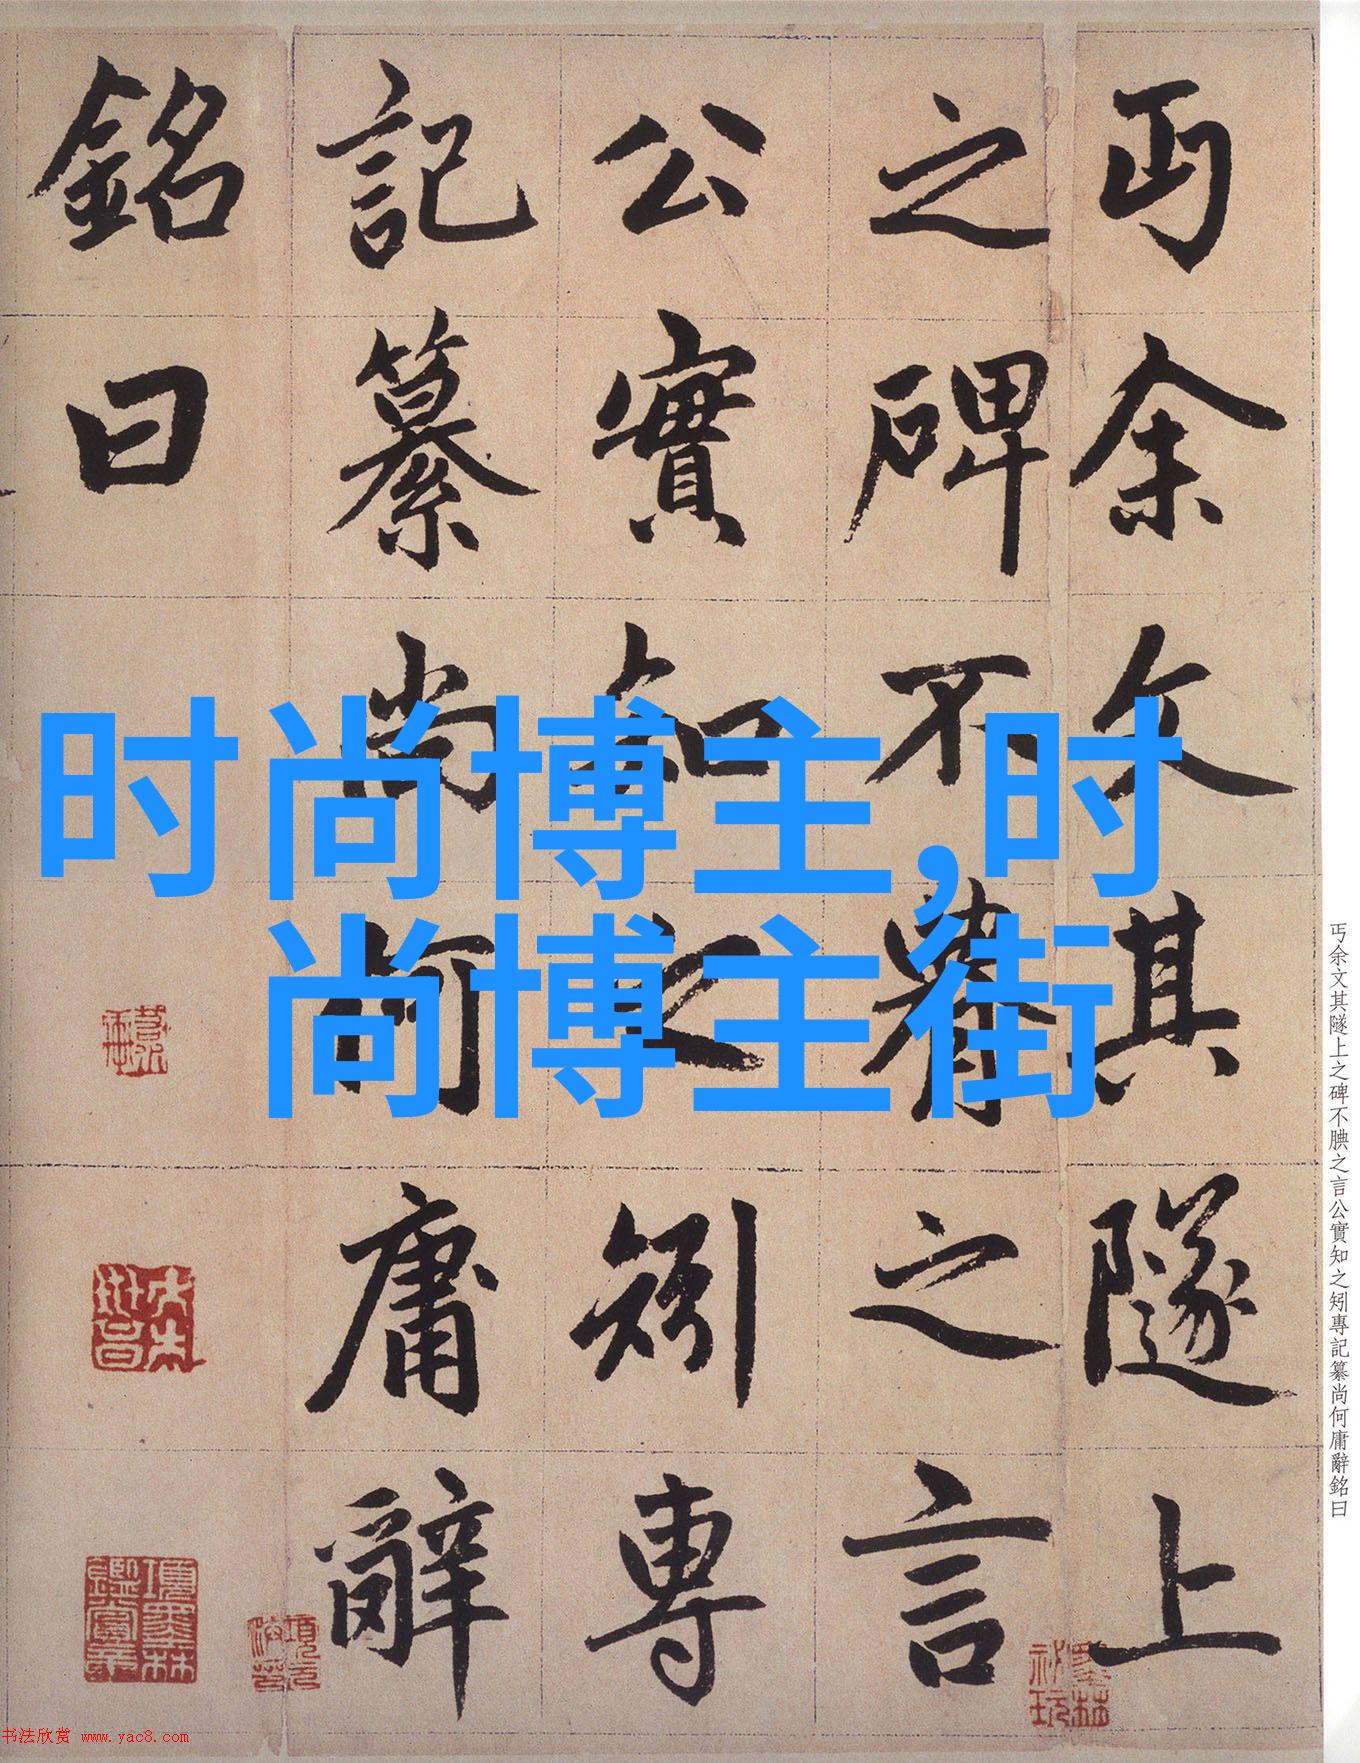 丏余文其隧上
之碑不腆之言
公實知之矧專
記纂尚何庸辭
銘曰
时尚博主,时
尚博主街
丏余文其隧上之碑不腆之言公實知之矧專記纂尚何庸辭銘曰
项墨林鑑賞章
墨林祕玩
书法欣赏 www.yac8.com